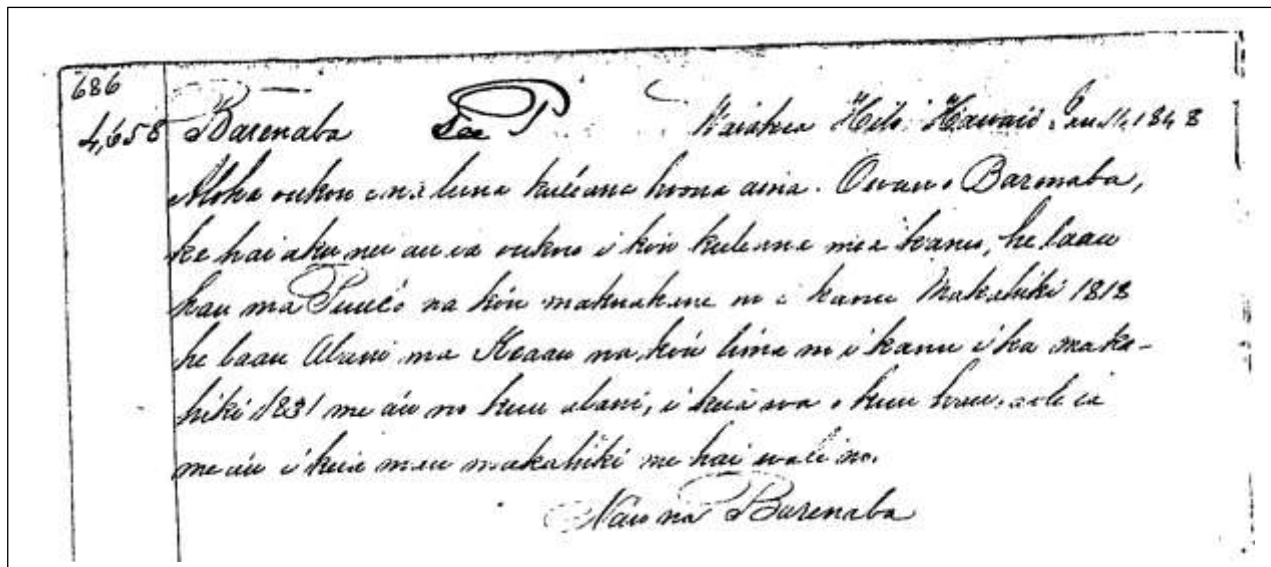 686
4,658 Barenaba See P Waiakea Hilo Hawaii Jan 11, 1848
Aloha oukou e na luna kuleana hoona aina. Owau o Barenaba,
ke hai aku nei au ia oukou i ko'u kuleana mea kanu, he laau
hau ma Puueo na ko'u makuakane no i kanu Makahiki 1818
he laau Alani ma Keaau na ko'u lima no i kanu i ka maka-
hiki 1831 me a'u no kuu alani, i keia wa o kuu hau, aole ia
me a'u i keia mau makahiki me hai wale no.
Na'u na Barenaba